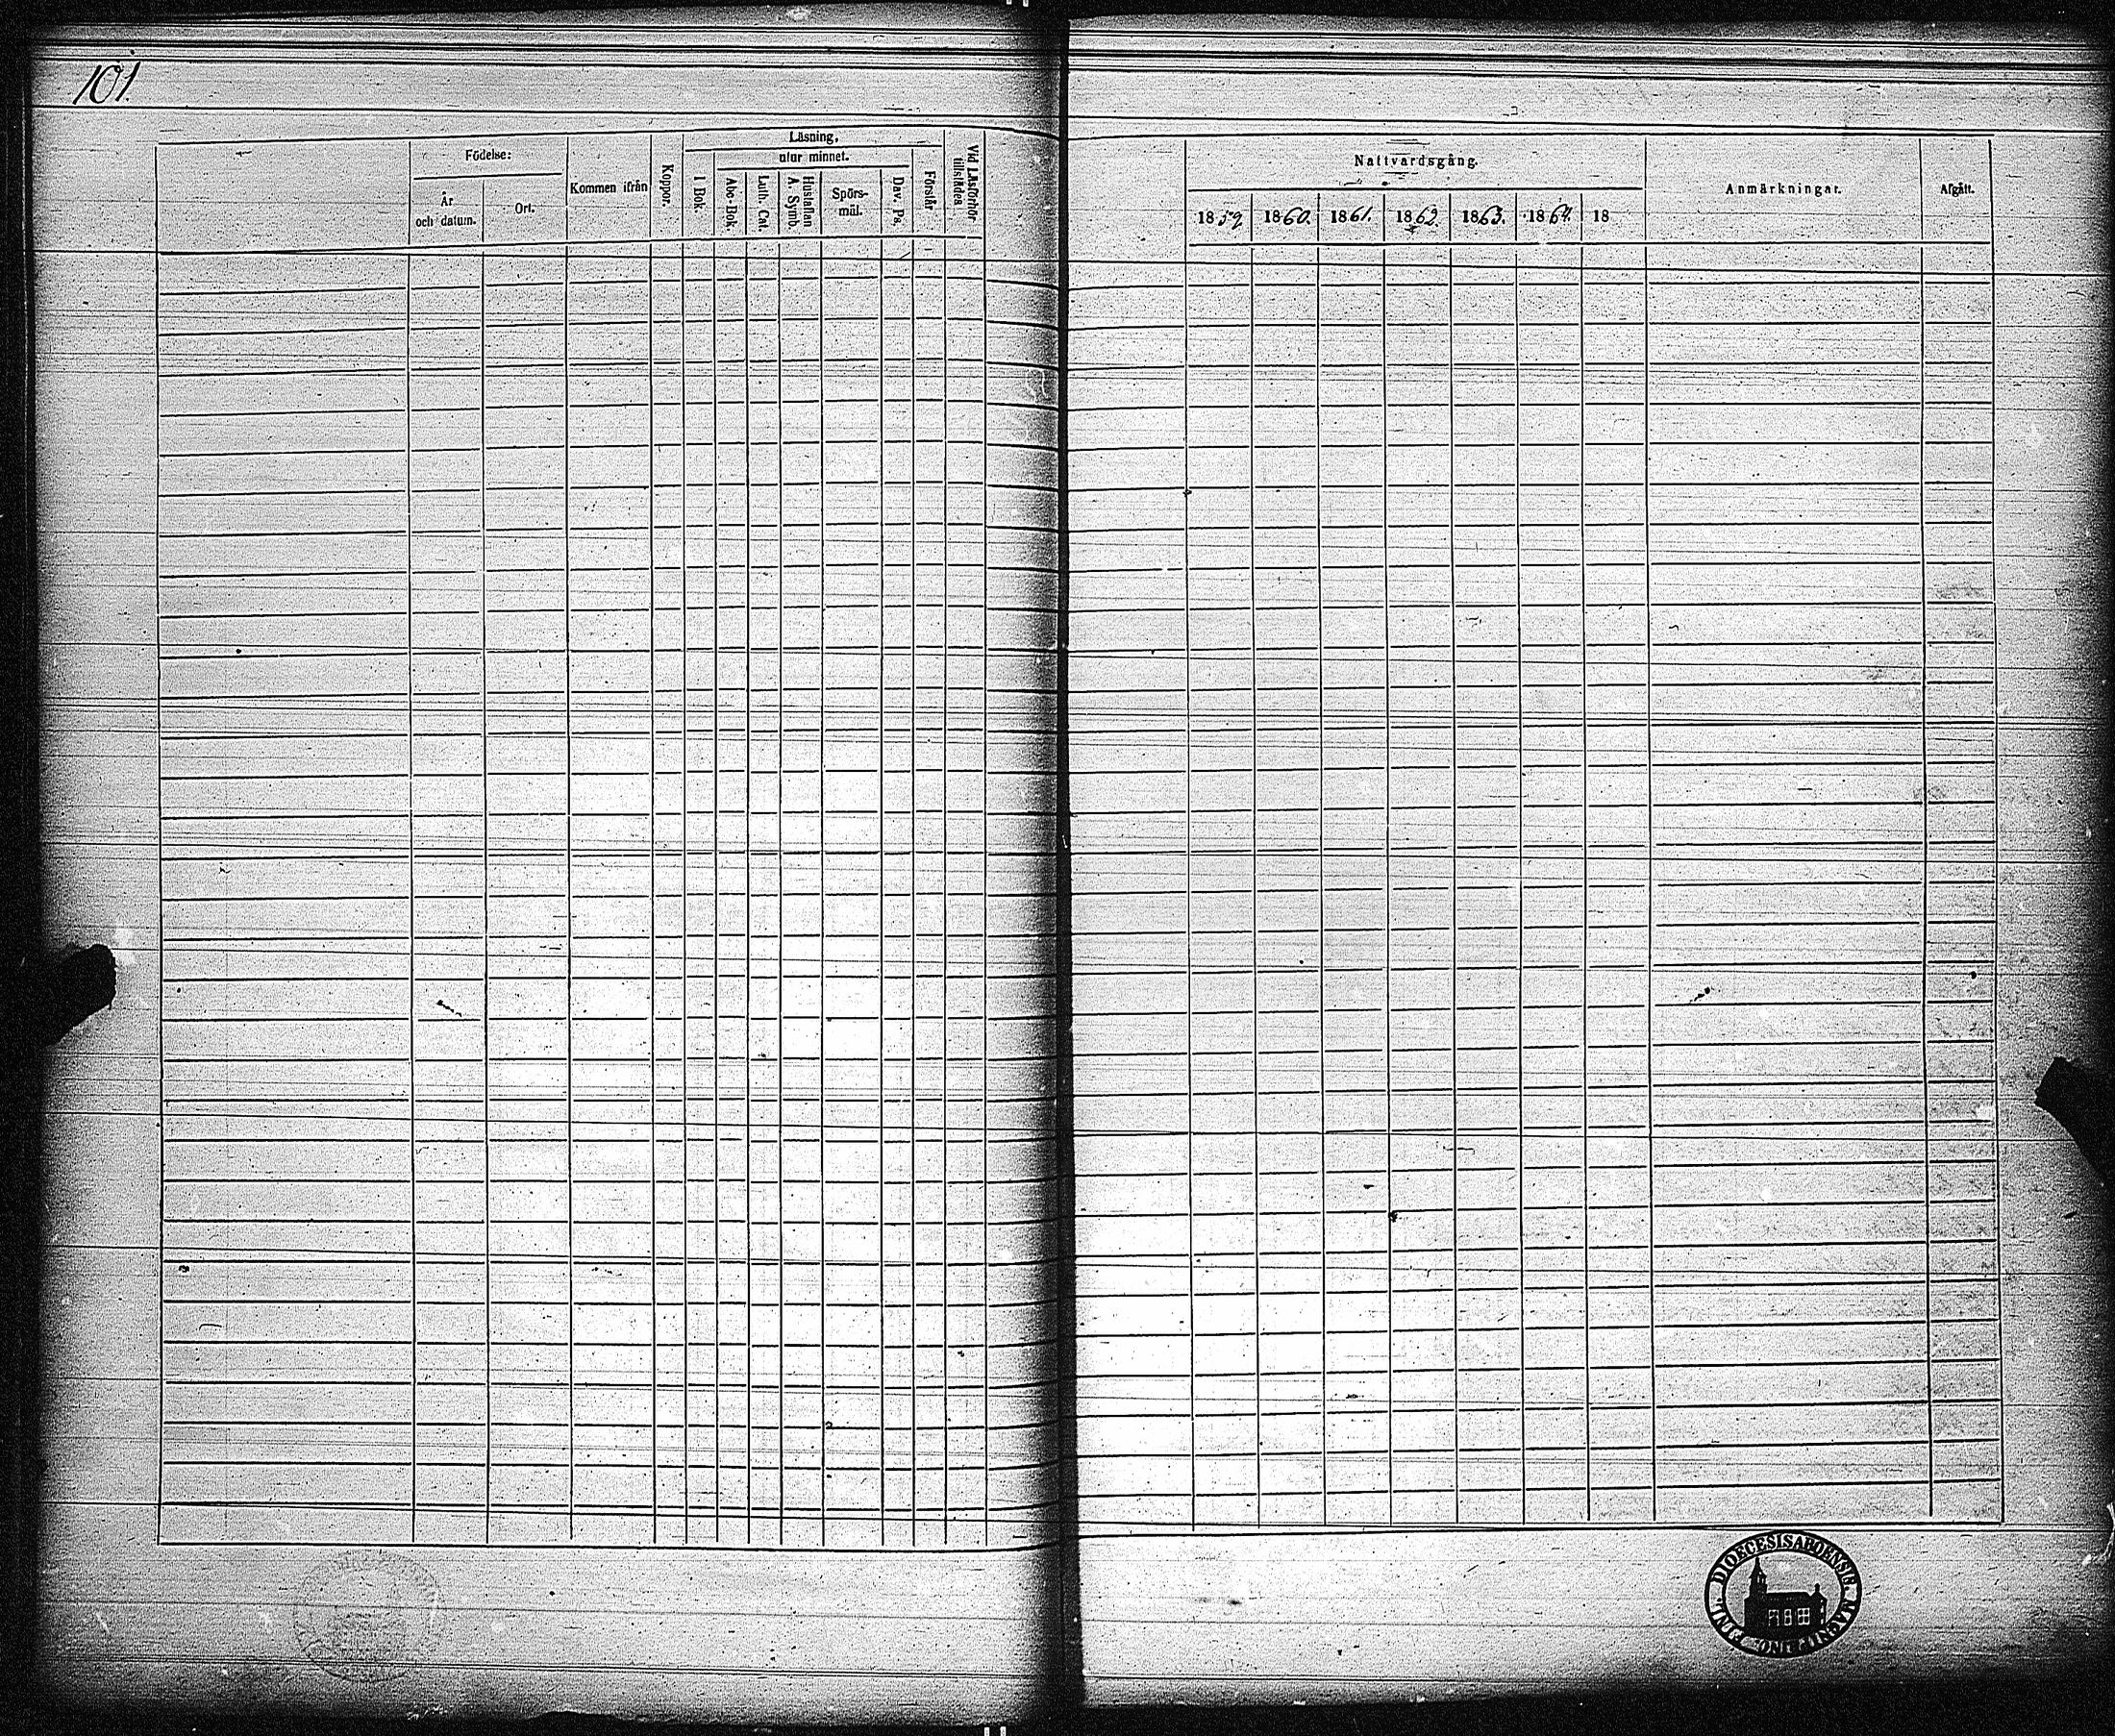 101.
Födelse:
År
och datum.
Ort.
Kommen ifrån
Koppor.
Läsning,
utur minnet.
I Bok.
Abc-Bok.
Luth. Cat.
Hustaflan
A. Symb.
Spörs-
mål.
Dav. Ps.
Förstår
Vid Läsförhör
tillstädes
Nattvardsgång.
1859
1860.
1861.
1862.
1863.
1864.
18
Anmärkningar.
Afgått.